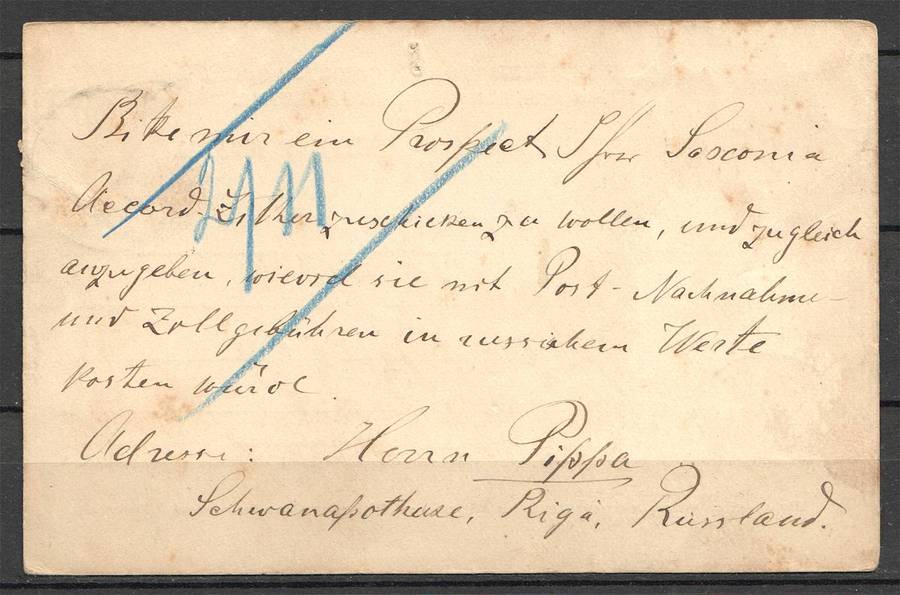 Bitte mir ein Prospect Ihrer Saxonia
Accord-Zither zuschicken zu wollen, und zugleich
anzugeben, wieviel sie mit Post-Nachnahme-
und Zollgebühren in russischem Werte
kosten würde.
2/11
Adresse: Herrn Pippa
Schwanapotheke, Riga, Russland.